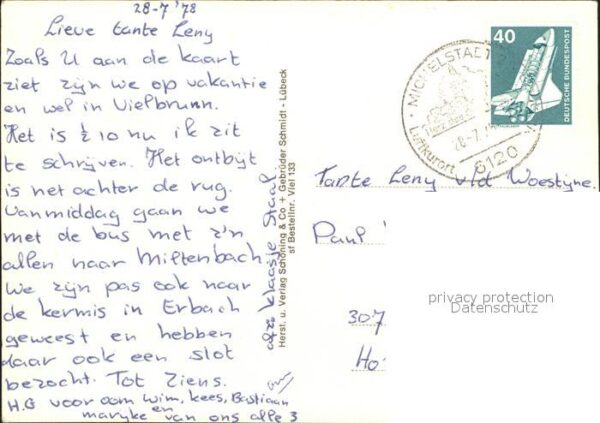 28-7-'78
Lieve tante Leny
Zoals U aan de kaart
ziet zijn we op vakantie
en wel in Vielbrunn.
Het is ½ 10 nu ik zit
te schrijven. Het ontbijt
is net achter de rug.
Vanmiddag gaan we
met de bus met z'n
allen naar Miltenbach
We zijn pas ook naar
de kermis in Erbach
geweest en hebben
daar ook een slot
bezocht. Tot Ziens.
H.G voor oom Wim, Kees, Bastiaan
en
maryke van ons alle 3
Klaasje Staal
Herst. u. Verlag Schöning & Co + Gebrüder Schmidt - Lübeck
sf Bestellnr. Viel 133
40
DEUTSCHE BUNDESPOST
MICHELSTADT
Luftkurort
6120
Tante Leny v/d Woestyne
Paul
307
Ho
privacy protection
Datenschutz